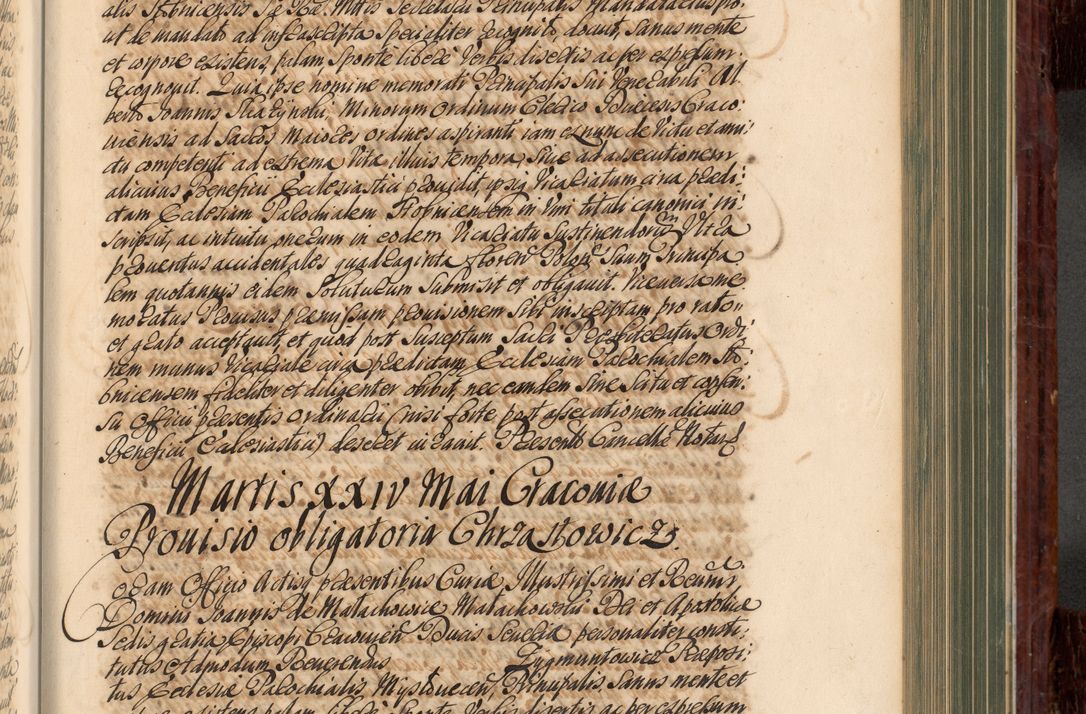 ut de mandato ad infrascripta Specialiter recognito, docuit, Sanus mente
et corpore existens, palam Sponte libere Verbis disertis ac per expressum
recognouit. Quia ipse nomine memorati Principalis Sui Venerabili Al
berto Joannis Minorum Ordinum Clerico Diæcesis Craco:
uiensis ad Sacros Maiores ordines aspiranti iam ex nunc de Victu et ami:
ctu competenti ad extrema Vitæ illius tempora, Siue ad assecutionem
alicuius Beneficii Ecclesiastici prouidit, ipsiq Vicariatum circa prædi:
ctam Ecclesiam Parochialem Stobnicensem in Vim tituli canonici in:
scripsit, ac intuitu onerum in eodem Vicariatu Sustinendorum Vltra
prouentus accidentales quadraginta floren Polon Suum Principa
lem quotannis eidem Soluturum Submisit et obligauit. Viceuersa me
moratus Prouisus præmissam prouisionem Sibi inscriptam pro rato
et grato acceptauit, et quod post Susceptum Sacri Præsbiteratus Ordi
nem munus Vicariale circa prædictam Ecclesiam Parochialem Sto
bnicensem fideliter et diligenter obibit, nec eandem Sine Scitu et consen:
su Officii præsentis ordinarii (nisi forte post assecutionem alicuius
Beneficii Ecclesiastici) deseret iurauit. Præsente Cancellæ Notar
Martis XXIV Mai Cracouiæ
Prouisio obligatoria Chrząstowicz.
Coram Officio Actisq præsentibus Curiæ Illustrissimi et Reuermi
Domini Joannis de Małachowice Małachowski Dei et Apostolicæ
Sedis gratia Episcopi Cracouien Ducis Seueriæ personaliter consti:
tutus Admodum Reuerendus Zygmuntowicz Præposi:
tus Ecclesiæ Parochialis Principalis, Sanus mente et